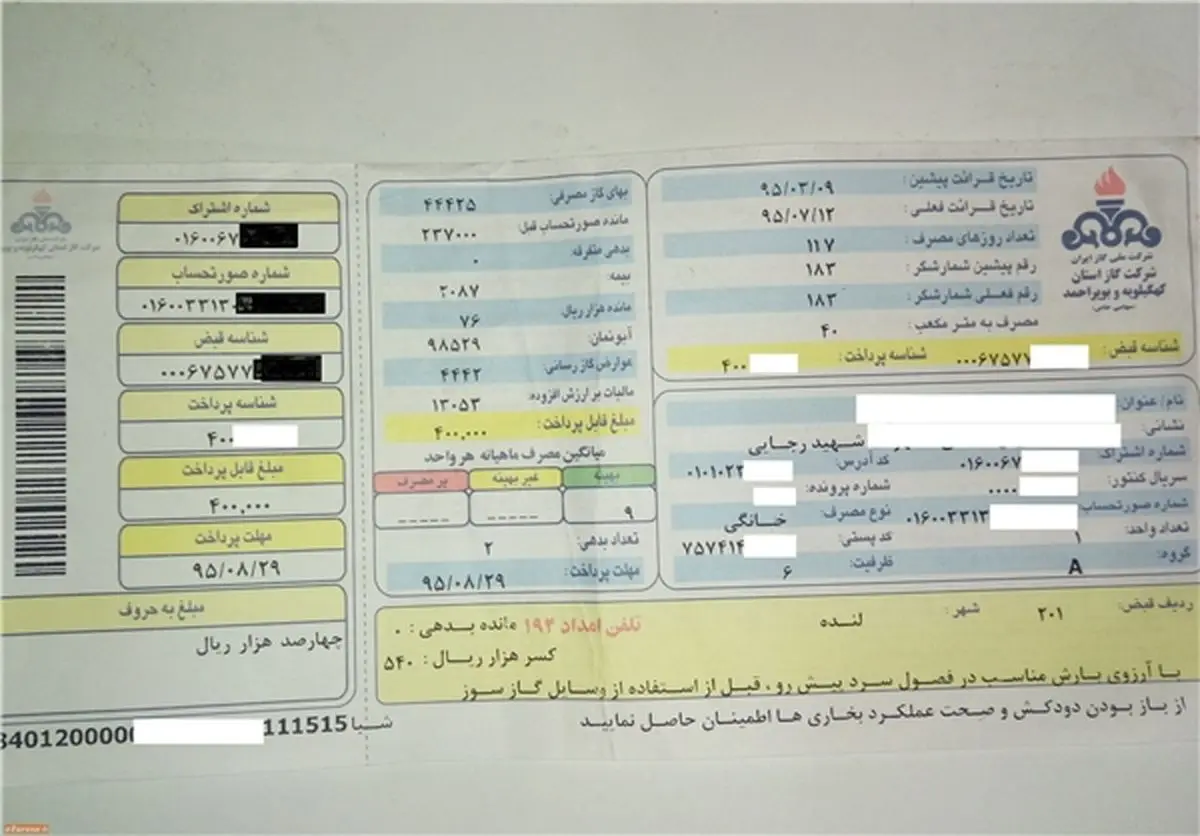 شرکت ملی گاز ایران
شرکت گاز استان
کهگیلویه و بویراحمد
(سهامی خاص)
تاریخ قرائت پیشین : ۹۵/۰۳/۰۹
تاریخ قرائت فعلی : ۹۵/۰۷/۱۲
تعداد روزهای مصرف : ۱۱۷
رقم پیشین شمارشگر : ۱۸۳
رقم فعلی شمارشگر : ۱۸۳
مصرف به متر مکعب : ۴۰
شناسه قبض : ۰۰۰۶۷۵۷۷ شناسه پرداخت : ۴۰۰
نام/ عنوان:
نشانی: شهید رجایی
شماره اشتراک: ۰۱۶۰۰۶۷ کد آدرس: ۰۱۰۱۰۲۲
سریال کنتور: ۰۰۰۰ شماره پرونده:
شماره صورتحساب: ۰۱۶۰۰۳۳۱۳ نوع مصرف: خانگی
تعداد واحد: ۱ کد پستی: ۷۵۷۴۱۴
گروه: A ظرفیت: ۶
بهای گاز مصرفی: ۴۴۴۲۵
مانده صورتحساب قبل: ۲۳۷۰۰۰
بدهی متفرقه: ۰
بیمه: ۲۰۸۷
مانده هزار ریال: ۷۶
آبونمان: ۹۸۵۲۹
عوارض گاز رسانی: ۴۴۴۲
مالیات بر ارزش افزوده: ۱۳۰۵۳
مبلغ قابل پرداخت : ۴۰۰,۰۰۰
میانگین مصرف ماهیانه هر واحد
بهینه غیر بهینه پر مصرف
۹ ----- -----
تعداد بدهی: ۲
مهلت پرداخت: ۹۵/۰۸/۲۹
ردیف قبض: ۲۰۱ شهر : لنده
تلفن امداد ۱۹۴ مانده بدهی : ۰
کسر هزار ریال : ۵۴۰
با آرزوی بارش مناسب در فصول سرد پیش رو ، قبل از استفاده از وسایل گاز سوز
از باز بودن دودکش و صحت عملکرد بخاری ها اطمینان حاصل نمایید
شماره اشتراک
۰۱۶۰۰۶۷
شماره صورتحساب
۰۱۶۰۰۳۳۱۳۰
شناسه قبض
۰۰۰۶۷۵۷۷
شناسه پرداخت
۴۰۰
مبلغ قابل پرداخت
۴۰۰,۰۰۰
مهلت پرداخت
۹۵/۰۸/۲۹
مبلغ به حروف
چهارصد هزار ریال
شبا 111515 8401200000